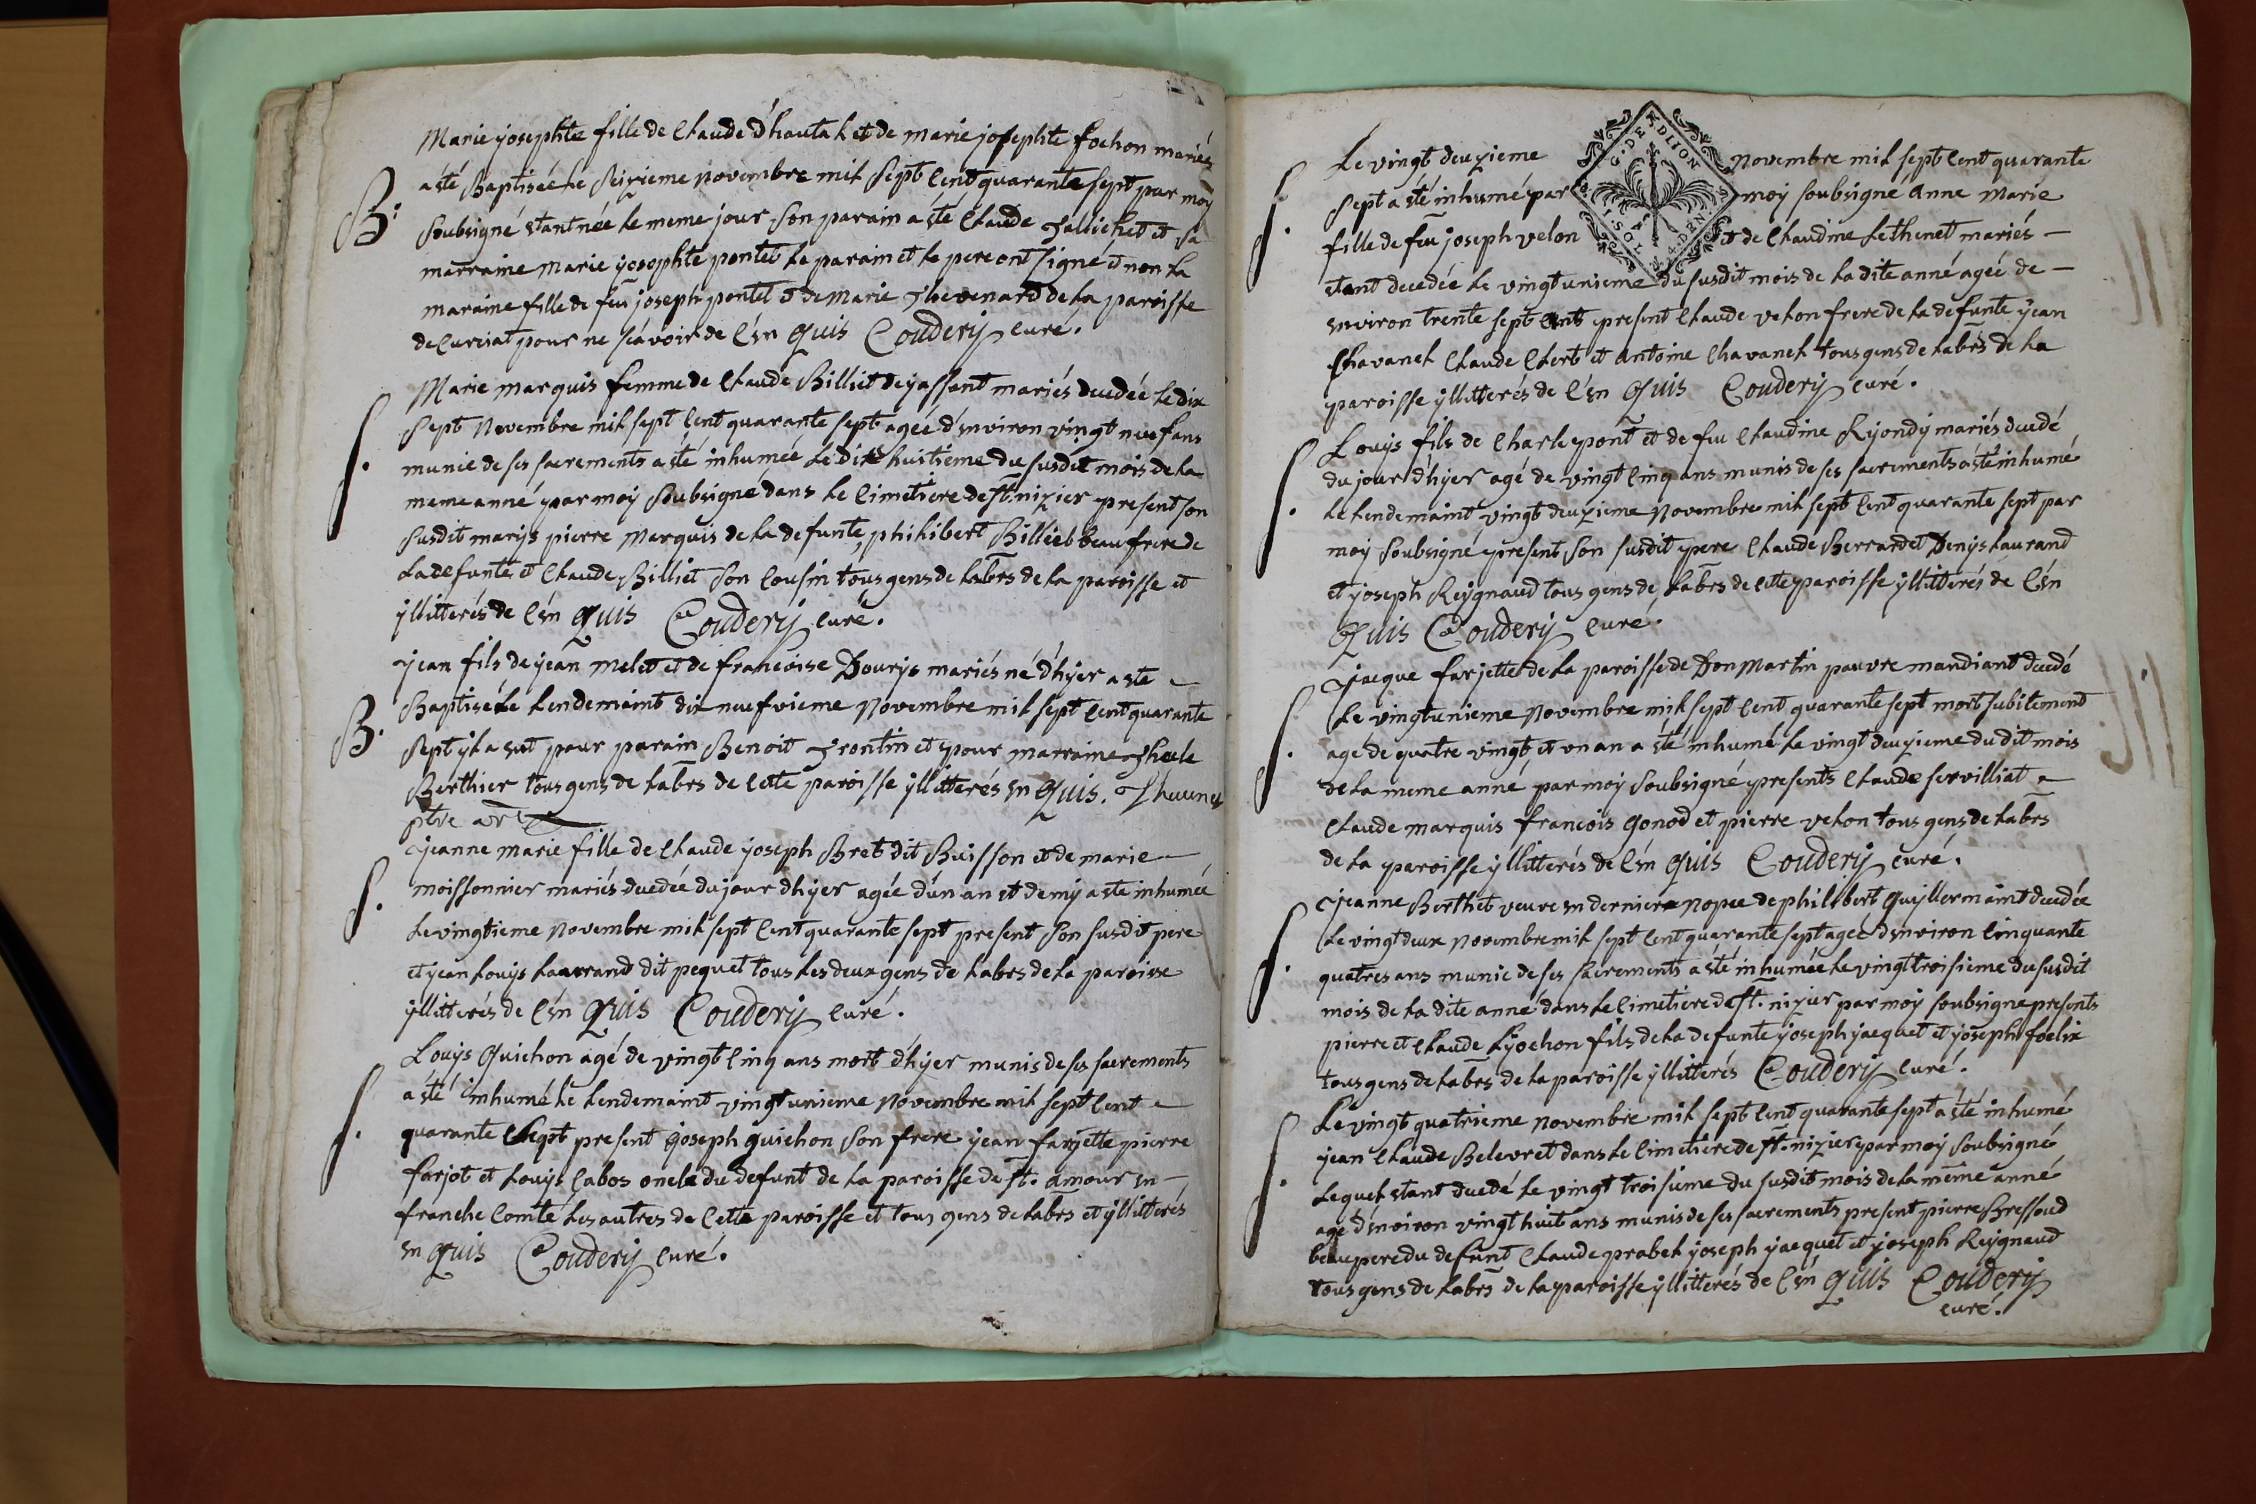 Marie josephte fille de Claude d'hautal et de marie josephte fochon mariés
B. a été Baptisée le Seizieme novembre mil Sept Cent quarante sept par moy
Soubsigné etant née le meme jour son parain a été Claude jallichet et sa
marraine marie josephte pontet le parain et le pere ont signé et non la
maraine fille de feu joseph pontet et de marie thevenard de la paroisse
de curciat pour ne sçavoir de Cẽn quis Couderij curé.
Marie marquis femme de Claude Billiet de jassant mariés decedée le dix
S. Sept Novembre mil sept Cent quarante sept agée d'environ vingt neuf ans
munie de ses sacrements a été inhumée le dix huitieme du susdit mois de la
meme anné par moy Soubsigné dans le Cimetiere de st. nizier present son
susdit marijs pierre Marquis de la defunte, philibert Billiet beaufrere de
la defunte et Claude Billiet son Cousin tous gens de labrs de la paroisse et
yllitterés de Cẽn quis Couderij curé.
jean fils de jean melet et de francoise Dourijs mariés né d'hyer a ete
B. Baptisé le lendemaint dix neufvieme Novembre mil sept Cent quarante
Sept yl a eut pour parain Benoit frontin et pour marraine thecle
Berthier tous gens de labrs de Cette paroisse yllitterés en quis. Thevenet
ptre
jeanne marie fille de Claude joseph Bret dit Buisson et de marie
S. moissonnier mariés decedée du jour d'hyer agée d'un an et demy a ete inhumée
Le vingtieme Novembre mil sept Cent quarante sept present son susdit pere
et jean Louys Laurand dit pequet tous les deux gens de labrs de la paroisse
yllitterés de Cẽn quis Couderij curé.
Louys Guichon agé de vingt Cinq ans mort d'hyer munis de ses sacrements
S. a été inhumé le lendemaint vingt unieme Novembre mil sept Cent
quarante Sept present joseph guichon son frere jean farjette pierre
farjot et Louys Cabos oncle du defunt de la paroisse de st. amour en
franche Comté les autres de Cette paroisse et tous gens de labrs et yllitterés
en quis Couderij curé.
S. Le vingt deuzieme novembre mil sept Cent quarante
Sept a été inhumé par moy soubsigné Anne Marie
fille de feu joseph velon et de Claudine Lethenet mariés
etant decedée le vingt unieme du susdit mois de la dite anné agée de
environ trente sept ants present Claude velon frere de la defunte jean
Chavanel Claude Chert et Antoine Chavanel tous gens de labrs de la
paroisse yllitterés de Cẽn quis Couderij curé.
S. Louys fils de Charle pont et de feu Claudine Ryondy mariés decedé
du jour d'hyer agé de vingt Cinq ans munis de ses sacrements a été inhumé
Le lendemaint vingt deuzieme Novembre mil sept Cent quarante sept par
moy soubsigné present son susdit pere Claude Berrardet Denys Laurand
et joseph Reygnaud tous gens de labrs de Cette paroisse yllitterés de Cẽn
Quis Couderij curé.
S. jacque farjette de la paroisse de Don Martin pauvre mandiant decedé
Le vingt unieme novembre mil sept Cent quarante sept mort subitement
agé de quatre vingt et un an a été inhumé le vingt deuzieme du dit mois
de la meme anné par moy soubsigné presents Claude servilliat
Claude marquis francois Gonod et pierre velon tous gens de labrs
de la paroisse yllitterés de Cẽn quis Couderij curé.
S. jeanne Berthet veuve en derniere nopce de philibert Guyllermaint decedée
Le vingt deux novembre mil sept Cent quarante sept agée d'environ Cinquante
quatres ans munie de ses sacrements a été inhumée le vingt troisieme du susdit
mois de la dite anné dans le Cimetiere de st. nizier par moy soubsigne presents
pierre et Claude Lyochon fils de la defunte joseph jacquet et joseph foelix
tous gens de labrs de la paroisse yllitterés Couderij curé.
S. Le vingt quatrieme novembre mil sept Cent quarante sept a été inhumé
jean Claude Belevret dans le Cimetiere de st. nizier par moy soubsigné
Lequel etant decedé le vingt troisieme du susdit mois de la meme anné
agé d'environ vingt huit ans munis de ses sacrements present pierre Bressoud
beaupere du defunt Claude prabel joseph jacquet et joseph Reygnaud
tous gens de labrs de la paroisse yllitterés de Cẽn quis Couderij
curé.